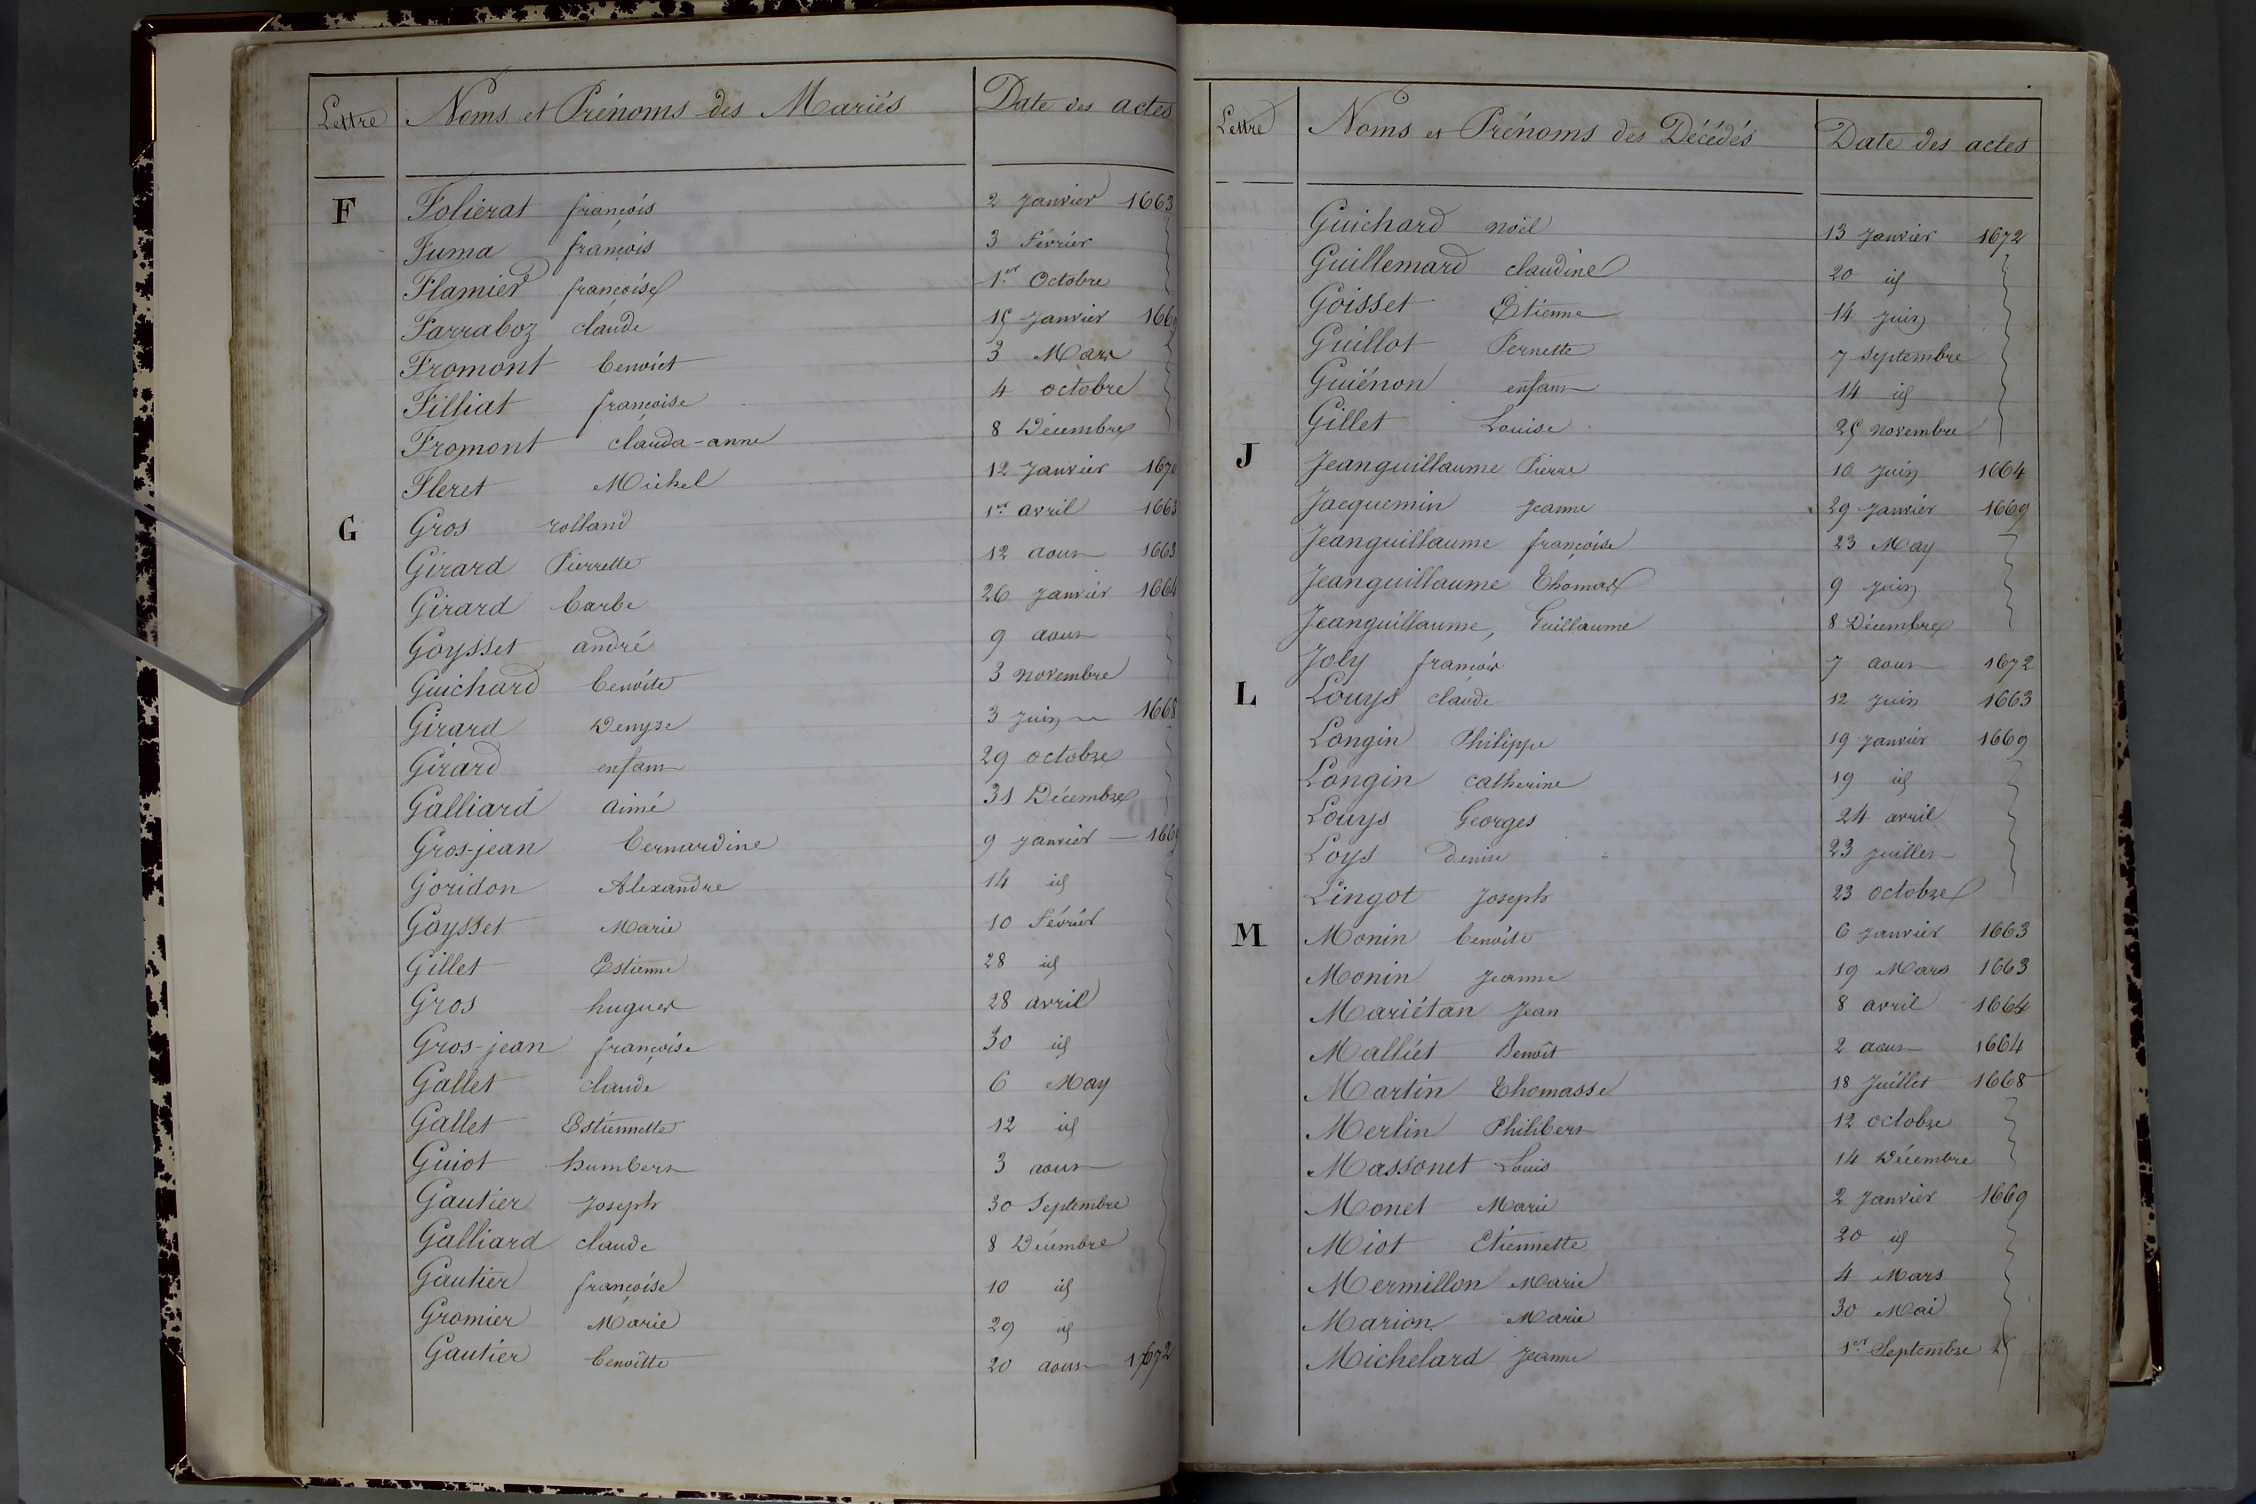 Lettre Noms et Prénoms des Mariés Date des actes
F Folierat françois 2 Janvier 1663
Fuma françois 3 Février
Flamier françoise 1er Octobre
Farraboz claude 15 Janvier 1669
Fromont benoiet 3 Mars
Filliat françoise 4 octobre
Fromont clauda-anne 8 Décembre
Fleret Michel 12 Janvier 1670
G Gros rolland 1er avril 1663
Girard Pierrette 12 aout 1663
Girard barbe 26 Janvier 1664
Goysset andré 9 aout
Guichard benoite 3 novembre
Girard Denyse 3 Juin 1668
Girard enfant 29 octobre
Galliard aimé 31 Décembre
Gros-jean bernardine 9 Janvier 1669
Goridon Alexandre 14 id
Goysset Marie 10 Février
Gillet Estienne 28 id
Gros hugues 28 avril
Gros-jean françoise 30 id
Gallet claude 6 May
Gallet Estiennette 12 id
Guiot humbert 3 aout
Gautier Joseph 30 Septembre
Galliard claude 8 Décembre
Gautier françoise 10 id
Gromier Marie 29 id
Gautier benoîtte 20 aout 1672
Lettre Noms et Prénoms des Décédés Date des actes
Guichard noël 13 Janvier 1672
Guillemard claudine 20 id
Goisset Etienne 14 juin
Guillot Pernette 7 Septembre
Guiénon enfant 14 id
Gillet Louise 25 novembre
J Jeanguillaume Pierre 10 juin 1664
Jacquemin Jeanne 29 Janvier 1669
Jeanguillaume françoise 23 May
Jeanguillaume Thomas 9 juin
Jeanguillaume, Guillaume 8 Décembre
Joly françois 7 aout 1672
L Louys claude 12 juin 1663
Longin Philippe 19 Janvier 1669
Longin catherine 19 id
Louys Georges 24 avril
Loys Denise 23 juillet
Lingot Joseph 23 octobre
M Monin benoite 6 Janvier 1663
Monin Jeanne 19 Mars 1663
Mariétan Jean 8 avril 1664
Malliet Benoît 2 aout 1664
Martin Thomasse 18 Juillet 1668
Merlin Philibert 12 octobre
Massonet Louis 14 Décembre
Monet Marie 2 Janvier 1669
Miot Etiennette 20 id
Mermillon Marie 4 Mars
Marion Marie 30 Mai
Michelard Jeanne 1er Septembre